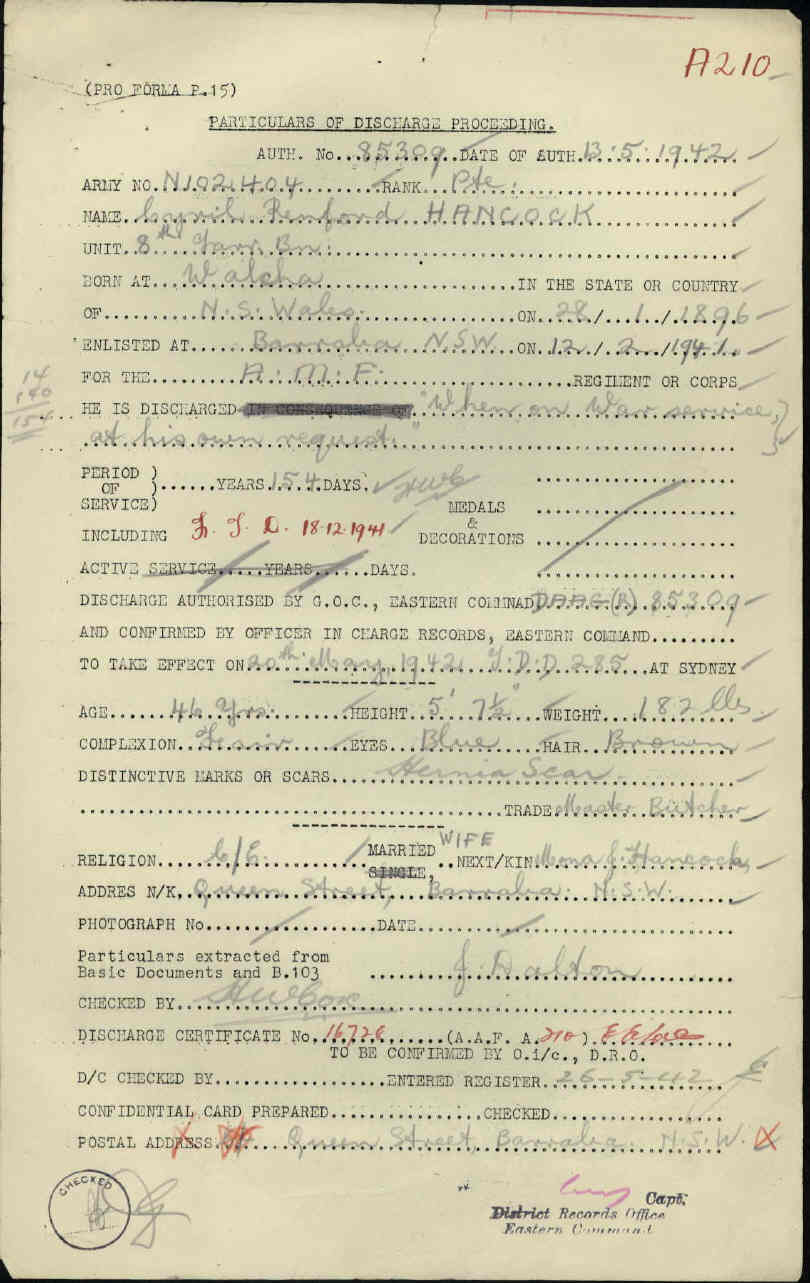 A210
(PRO FORMA P.15)
PARTICULARS OF DISCHARGE PROCEEDING.
AUTH. No...85309...DATE OF AUTH.13.5.1942
ARMY NO. N102404 RANK Pte.
NAME. Cyril Penford HANCOCK
UNIT. 8th Garr. Bn.
BORN AT Walcha IN THE STATE OR COUNTRY
OF N.S. Wales ON 28/ 1 /1896
ENLISTED AT Barraba N.S.W. ON 12/ 2 /1941
FOR THE A.M.F. REGIMENT OR CORPS
14
140
154
HE IS DISCHARGED IN CONSEQUENCE OF "When on War service,
at his own request."
PERIOD )
OF )......YEARS 154 DAYS.
SERVICE)
MEDALS
&
DECORATIONS
INCLUDING F.T.D. 18.12.1941
ACTIVE SERVICE.....YEARS......DAYS.
DISCHARGE AUTHORISED BY G.O.C., EASTERN COMMNAD DAAG (R) 85309
AND CONFIRMED BY OFFICER IN CHARGE RECORDS, EASTERN COMMAND.........
TO TAKE EFFECT ON 20th May, 1942 T.D.D 285 AT SYDNEY
AGE 46 Yrs. HEIGHT 5' 7½" WEIGHT 182 lbs
COMPLEXION Fair EYES Blue HAIR Brown
DISTINCTIVE MARKS OR SCARS Hernia Scar
TRADE Master Butcher
RELIGION C/E MARRIED SINGLE, WIFE NEXT/KIN Mona J. Hancock,
ADDRES N/K, Queen Street, Barraba. N.S.W.
PHOTOGRAPH No..................DATE
Particulars extracted from
Basic Documents and B.103 J. Dalton
CHECKED BY
DISCHARGE CERTIFICATE No. 16726 (A.A.F. A.210)
TO BE CONFIRMED BY O.i/c., D.R.O.
D/C CHECKED BY..................ENTERED REGISTER 26-5-42
CONFIDENTIAL CARD PREPARED...............CHECKED
POSTAL ADDRESS. Queen Street, Barraba. N.S.W.
CHECKED
Capt.
District Records Office
Eastern Command